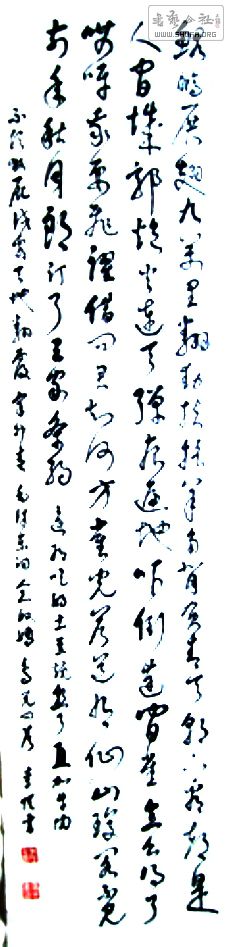 書藝公社
WWW.SHUFA.ORG
鲲鹏展翅九万里翻动扶摇羊角背负青天朝下看都是
人间城郭炮火连天弹痕遍地吓倒蓬间雀怎么得了
哎呀我要飞跃借问君去何方雀儿答道有仙山琼阁不见
前年秋月朗订了三家条约还有吃的土豆烧熟了再加牛肉
不须放屁试看天地翻覆 毛泽东词念奴娇鸟儿问答